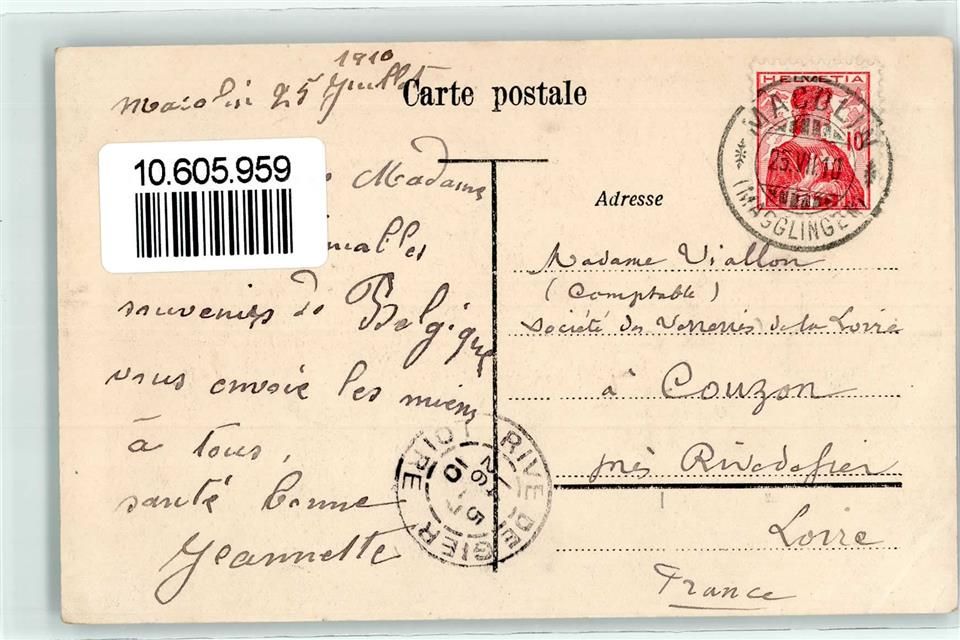 1910
Macolin 25 Juillet
Carte postale
10.605.959
Madame
souvenirs de Belgique
vous envoie les miens
à tous,
santé bonne
Jeannette
HELVETIA
10
MACOLIN
25.VII.10
(MAGGLINGEN)
Adresse
Madame Viallon
(Comptable)
Société des Verreries de la Loire
à Couzon
près Rivedegier
Loire
France
RIVE DE GIER
LOIRE
26 7
10